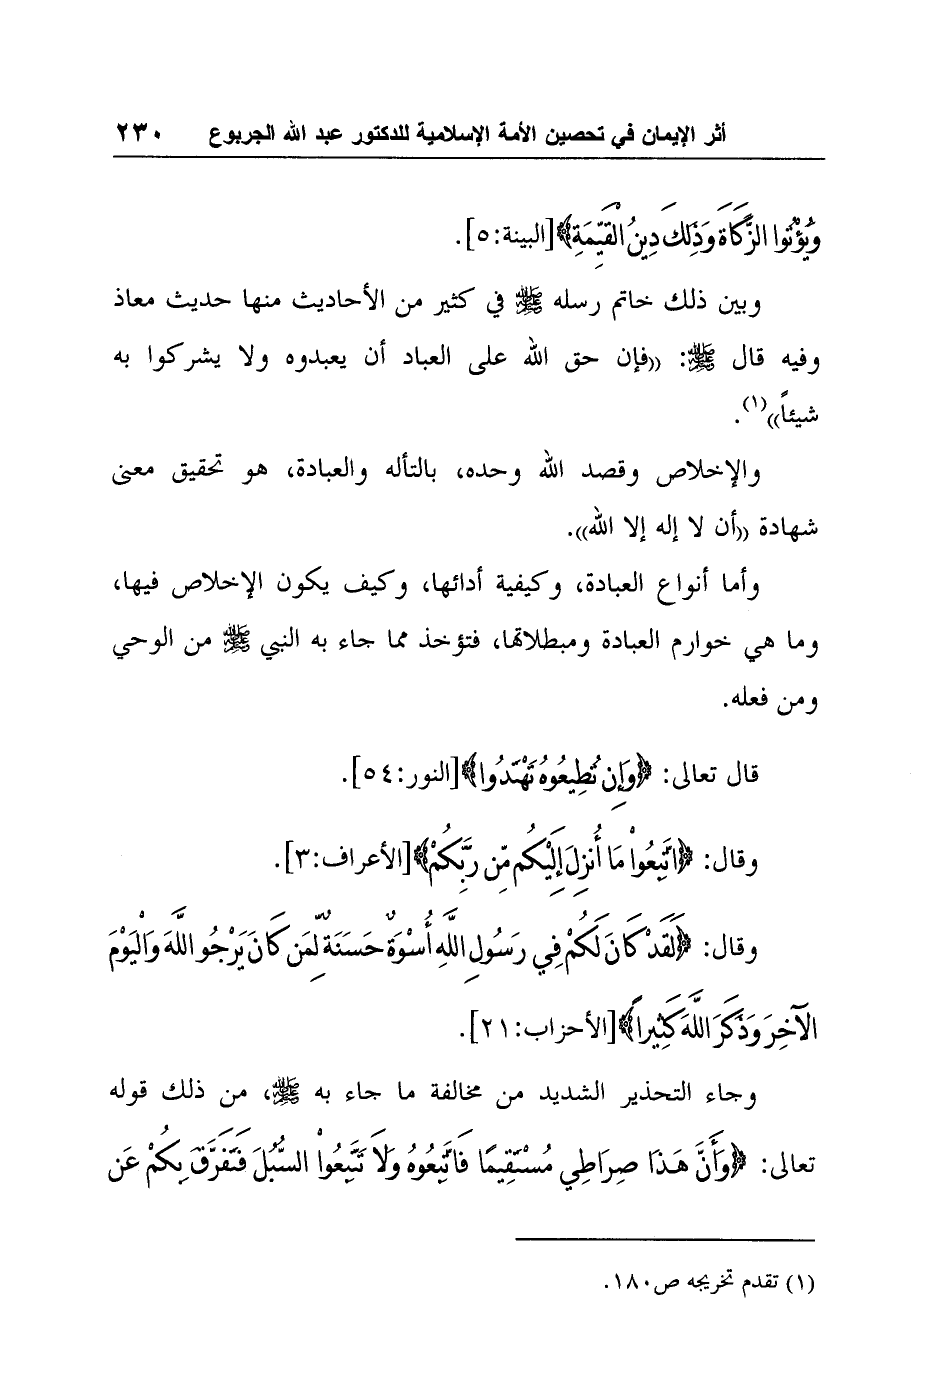 أثر الإيمان في تحصين الأمة الإسلامية للدكتور عبد الله الجربوع ٢٣٠
وَيُؤْتُوا الزَّكَاةَ وَذَلِكَ دِينُ الْقَيِّمَةِ﴾[البينة:٥].
وبين ذلك خاتم رسله ﷺ في كثير من الأحاديث منها حديث معاذ
وفيه قال ﷺ: ((فإن حق الله على العباد أن يعبدوه ولا يشركوا به
شيئاً))(١).
والإخلاص وقصد الله وحده، بالتأله والعبادة، هو تحقيق معنى
شهادة ((أن لا إله إلا الله)).
وأما أنواع العبادة، وكيفية أدائها، وكيف يكون الإخلاص فيها،
وما هي خوارم العبادة ومبطلاتها، فتؤخذ مما جاء به النبي ﷺ من الوحي
ومن فعله.
قال تعالى: ﴿وَإِن تُطِيعُوهُ تَهْتَدُوا﴾[النور:٥٤].
وقال: ﴿اتَّبِعُواْ مَا أُنزِلَ إِلَيْكُم مِّن رَّبِّكُمْ﴾[الأعراف:٣].
وقال: ﴿لَقَدْ كَانَ لَكُمْ فِي رَسُولِ اللَّهِ أُسْوَةٌ حَسَنَةٌ لِّمَن كَانَ يَرْجُو اللَّهَ وَالْيَوْمَ
الْآخِرَ وَذَكَرَ اللَّهَ كَثِيراً﴾[الأحزاب:٢١].
وجاء التحذير الشديد من مخالفة ما جاء به ﷺ، من ذلك قوله
تعالى: ﴿وَأَنَّ هَذَا صِرَاطِي مُسْتَقِيمًا فَاتَّبِعُوهُ وَلَا تَتَّبِعُواْ السُّبُلَ فَتَفَرَّقَ بِكُمْ عَن
(١) تقدم تخريجه ص١٨٠.